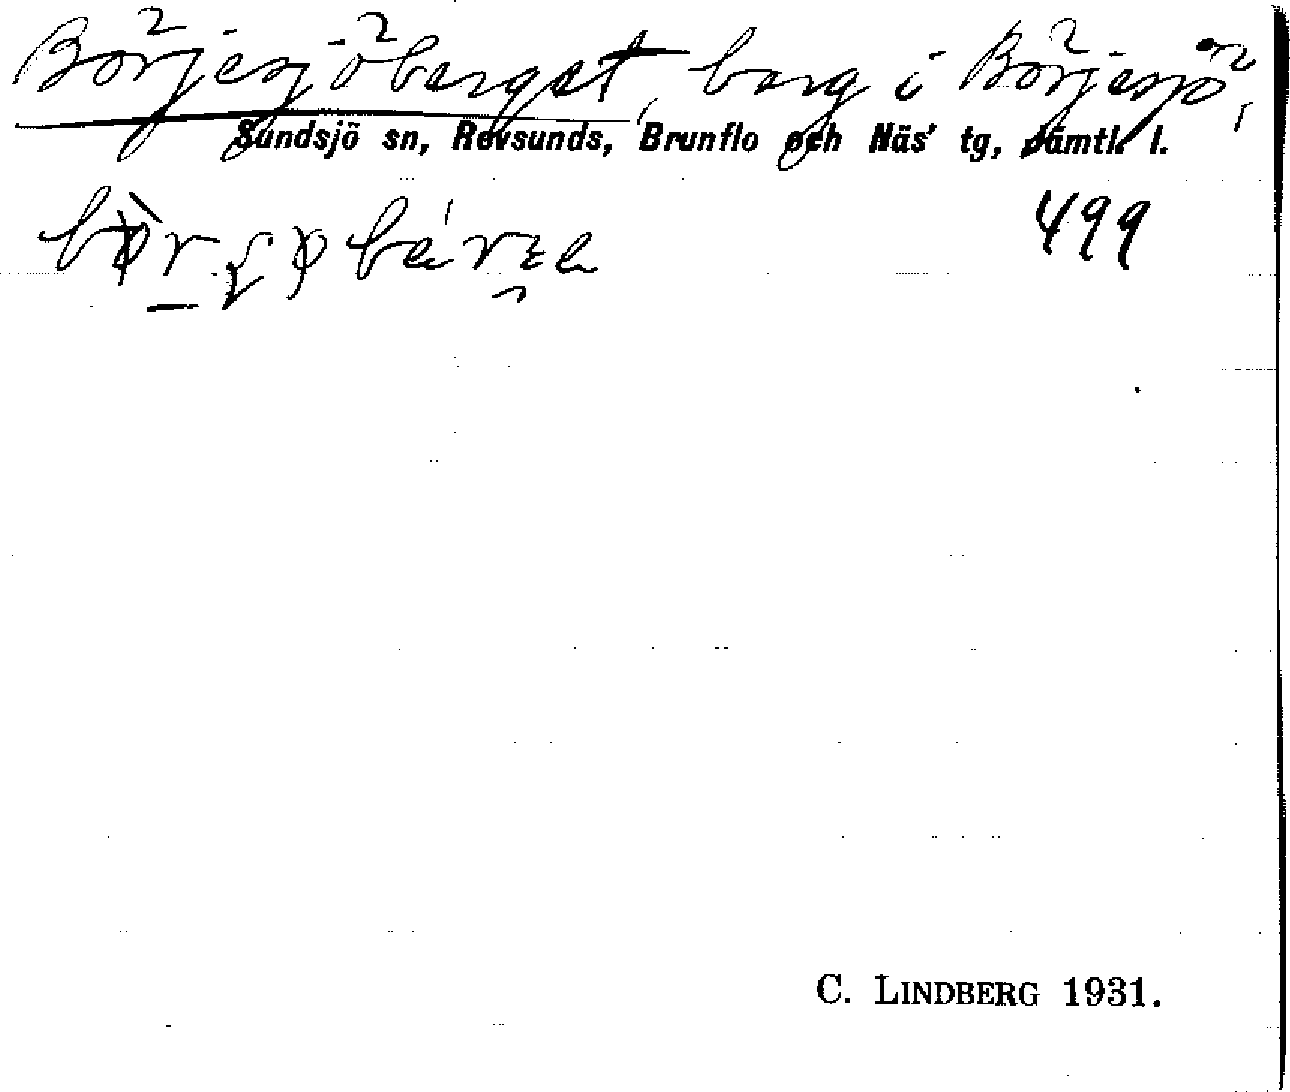 Börjesjöberget, berg i Börjesjö,
Sundsjö sn, Revsunds, Brunflo och Näs' tg, Jämtl. l.
499
C. LINDBERG 1931.